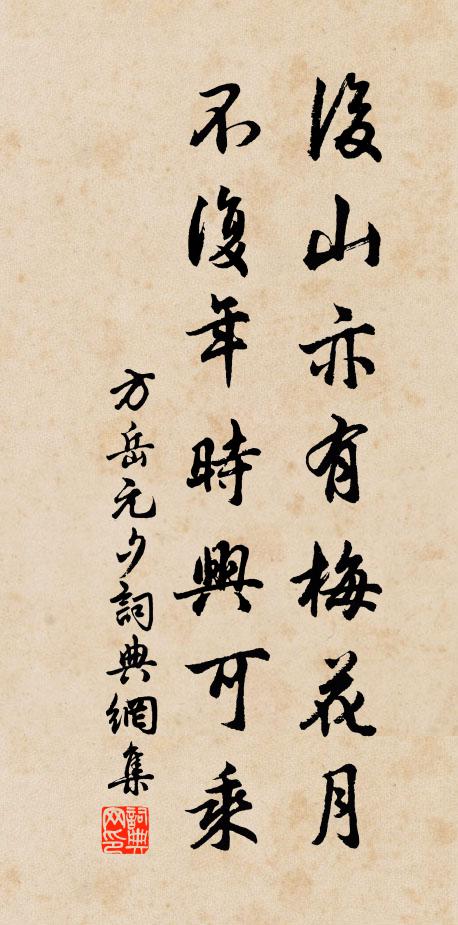 後山亦有梅花月
不復年時興可乘
方岳元夕詞典網集
詞典网印